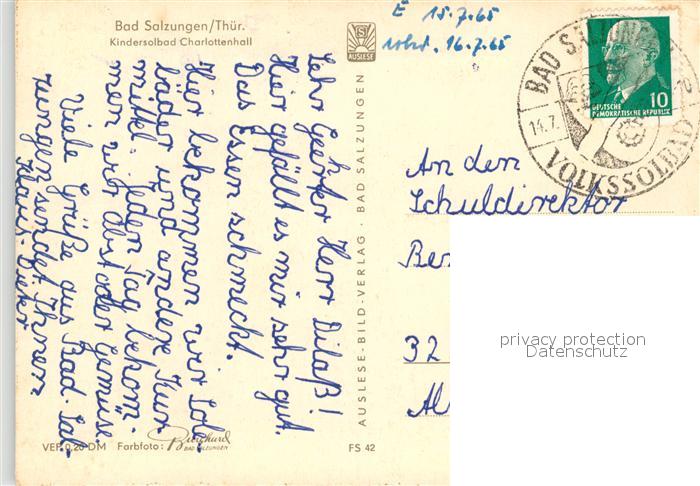 Bad Salzungen/Thür.
Kindersolbad Charlottenhall
AUSLESE
E 15.7.65
16.7.65
BAD SALZUNGEN
14.7.
VOLKSSOLBAD
DEUTSCHE
DEMOKRATISCHE REPUBLIK
10
Sehr Geehrter Herr Dilaß!
Hier gefällt es mir sehr gut.
Das Essen schmeckt.
Hier bekommen wir Sole-
bäder und andere Kur-
mittel. Jeden Tag bekom-
men wir Obst oder Gemüse.
Viele Grüße aus Bad-Sal-
zungen sendet Ihnen
Klaus-Dieter
AUSLESE-BILD-VERLAG · BAD SALZUNGEN
An den
Schuldirektor
32
privacy protection
Datenschutz
VEP 0,20 DM Farbfoto: Burchard
BAD SALZUNGEN
FS 42